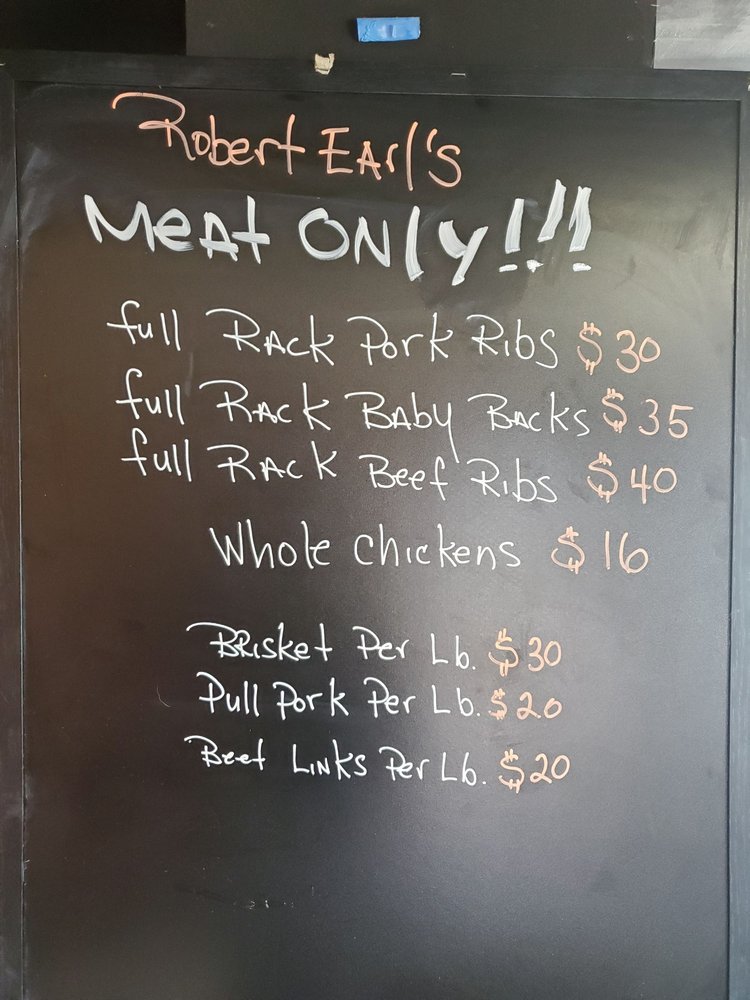 Robert Earl's
Meat Only!!!
full Rack Pork Ribs $30
full Rack Baby Backs $35
full Rack Beef Ribs $40
Whole Chickens $16
Brisket Per Lb. $30
Pull Pork Per Lb. $20
Beef Links Per Lb. $20